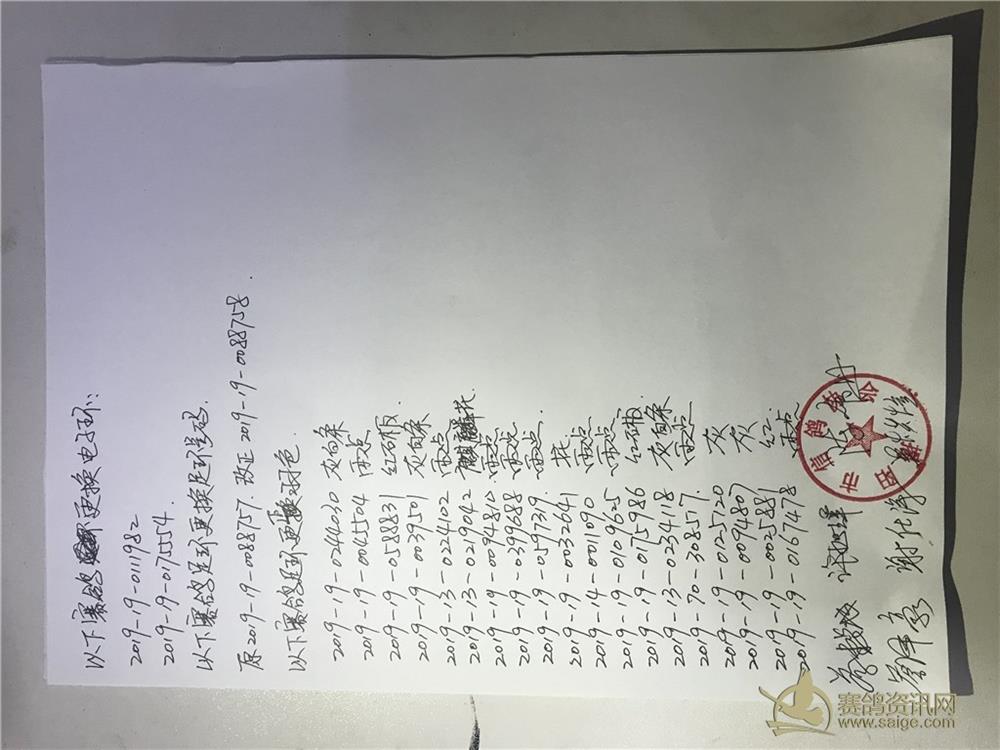 以下赛鸽更换电子环:
2019-19-0111982
2019-19-0175554.
以下赛鸽足环更换足环号码.
原2019-19-0088757.改正2019-19-0088758.
以下赛鸽足环更换羽色
2019-19-0244030 灰白条
2019-19-0061504 雨点
2019-19-0588831 红砂板
2019-19-0039501 灰白条
2019-13-0224102 雨点
2019-13-0219042 麒麟花
2019-19-0094810 雨点
2019-19-0399688 雨点
2019-19-0597319. 雨点.
2019-19-0032641 花
2019-14-0011090 雨点
2019-19-0109625 雨点
2019-19-0175986 红砂板
2019-13-0234118 灰白条
2019-70-308517. 雨点
2019-19-0125720 灰
2019-19-0094807 灰
2019-19-0025881 红
2019-19-0167478 雨点
市信鸽协会
赛鸽资讯网
www.saige.com